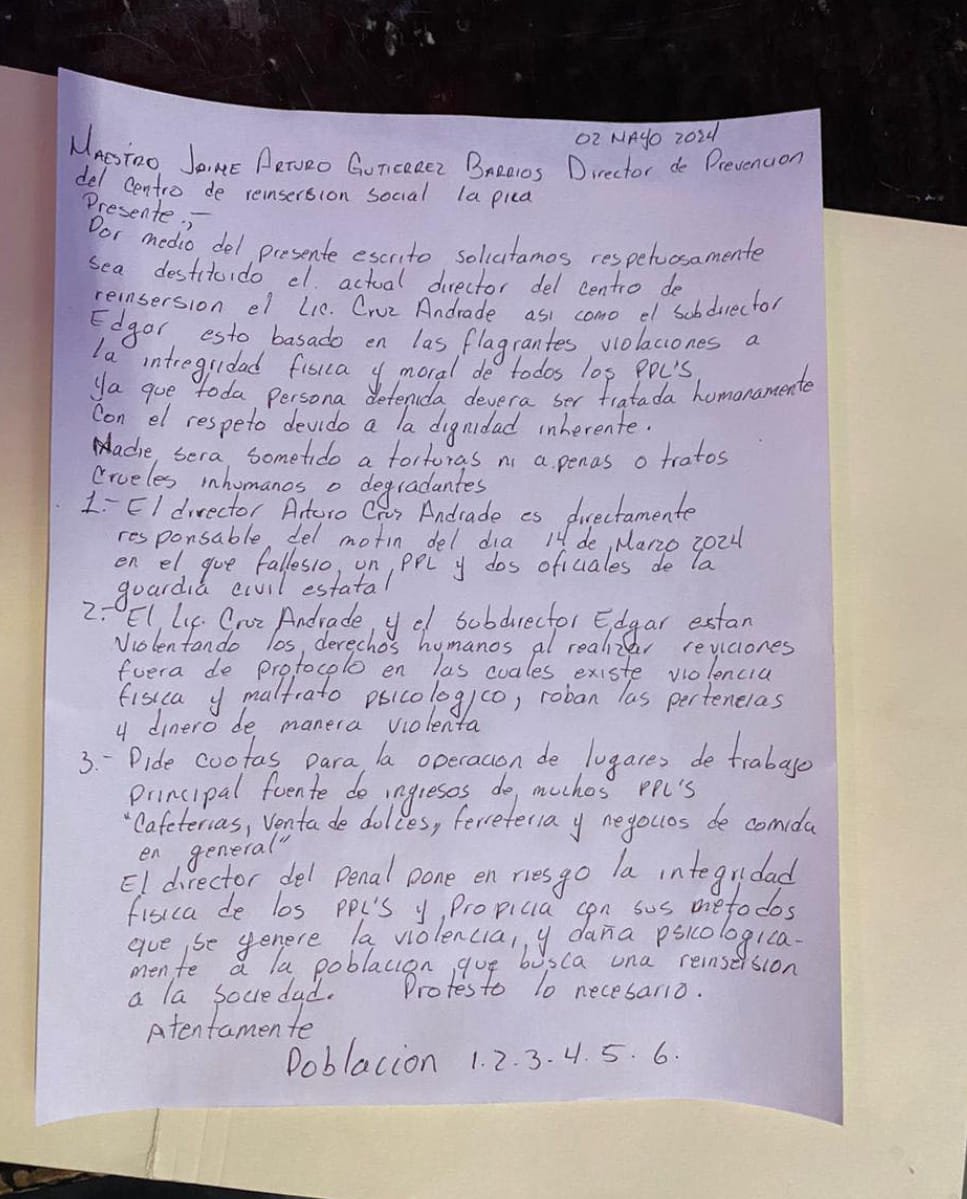 02 MAYO 2024
MAESTRO JAIME ARTURO GUTIERREZ BARRIOS Director de Prevencion
del Centro de reinsersion social la pica
Presente.;-
Por medio del presente escrito solicitamos respetuosamente
sea destituido el actual director del centro de
reinsersion el Lic. Cruz Andrade asi como el subdirector
Edgar esto basado en las flagrantes violaciones a
la intregridad fisica y moral de todos los PPL'S
ya que toda persona detenida devera ser tratada humanamente
Con el respeto devido a la dignidad inherente.
Nadie sera sometido a torturas ni a penas o tratos
Crueles inhumanos o degradantes
1.- El director Arturo Cruz Andrade es directamente
responsable del motin del dia 14 de Marzo 2024
en el que fallesio un PPL y dos oficiales de la
guardia civil estatal
2.- El Lic. Cruz Andrade y el subdirector Edgar estan
Violentando los derechos humanos al realizar reviciones
fuera de protocolo en las cuales existe violencia
fisica y maltrato psicologico, roban las pertenecias
y dinero de manera violenta
3.- Pide cuotas para la operacion de lugares de trabajo
principal fuente de ingresos de muchos PPL'S
"Cafeterias, Venta de dulces, ferreteria y negocios de comida
en general"
El director del penal pone en riesgo la integridad
fisica de los PPL'S y Propicia con sus metodos
que se genere la violencia, y daña psicologica-
mente a la poblacion que busca una reinsersion
a la sociedad. Protesto lo necesario.
Atentamente
Poblacion 1.2.3.4.5.6.